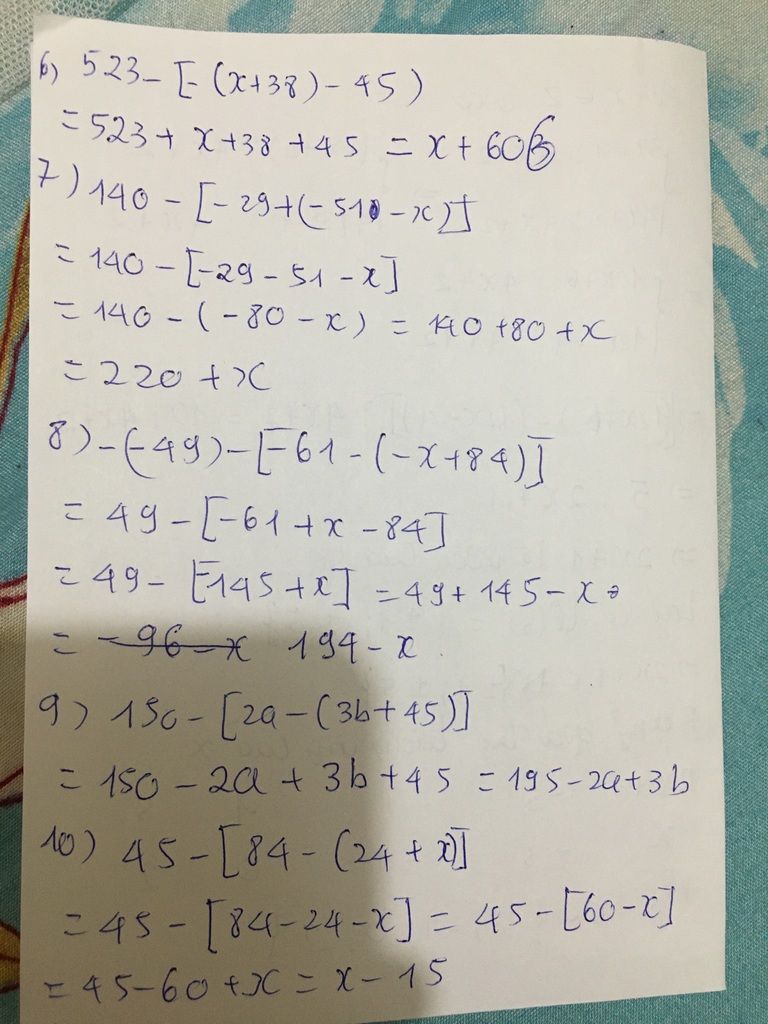 6) 523 - [- (x+38) - 45)
= 523 + x+38 + 45 = x + 606
7) 140 - [-29+(-51 - x)]
= 140 - [-29 - 51 - x]
= 140 - (-80 - x) = 140 +80 + x
= 220 + x
8) -(-49) - [-61 - (-x+84)]
= 49 - [-61 + x - 84]
= 49 - [-145 + x] = 49 + 145 - x
= -96 - x 194 - x
9) 150 - [2a - (3b + 45)]
= 150 - 2a + 3b + 45 = 195 - 2a + 3b
10) 45 - [84 - (24 + x)]
= 45 - [84 - 24 - x] = 45 - [60 - x]
= 45 - 60 + x = x - 15